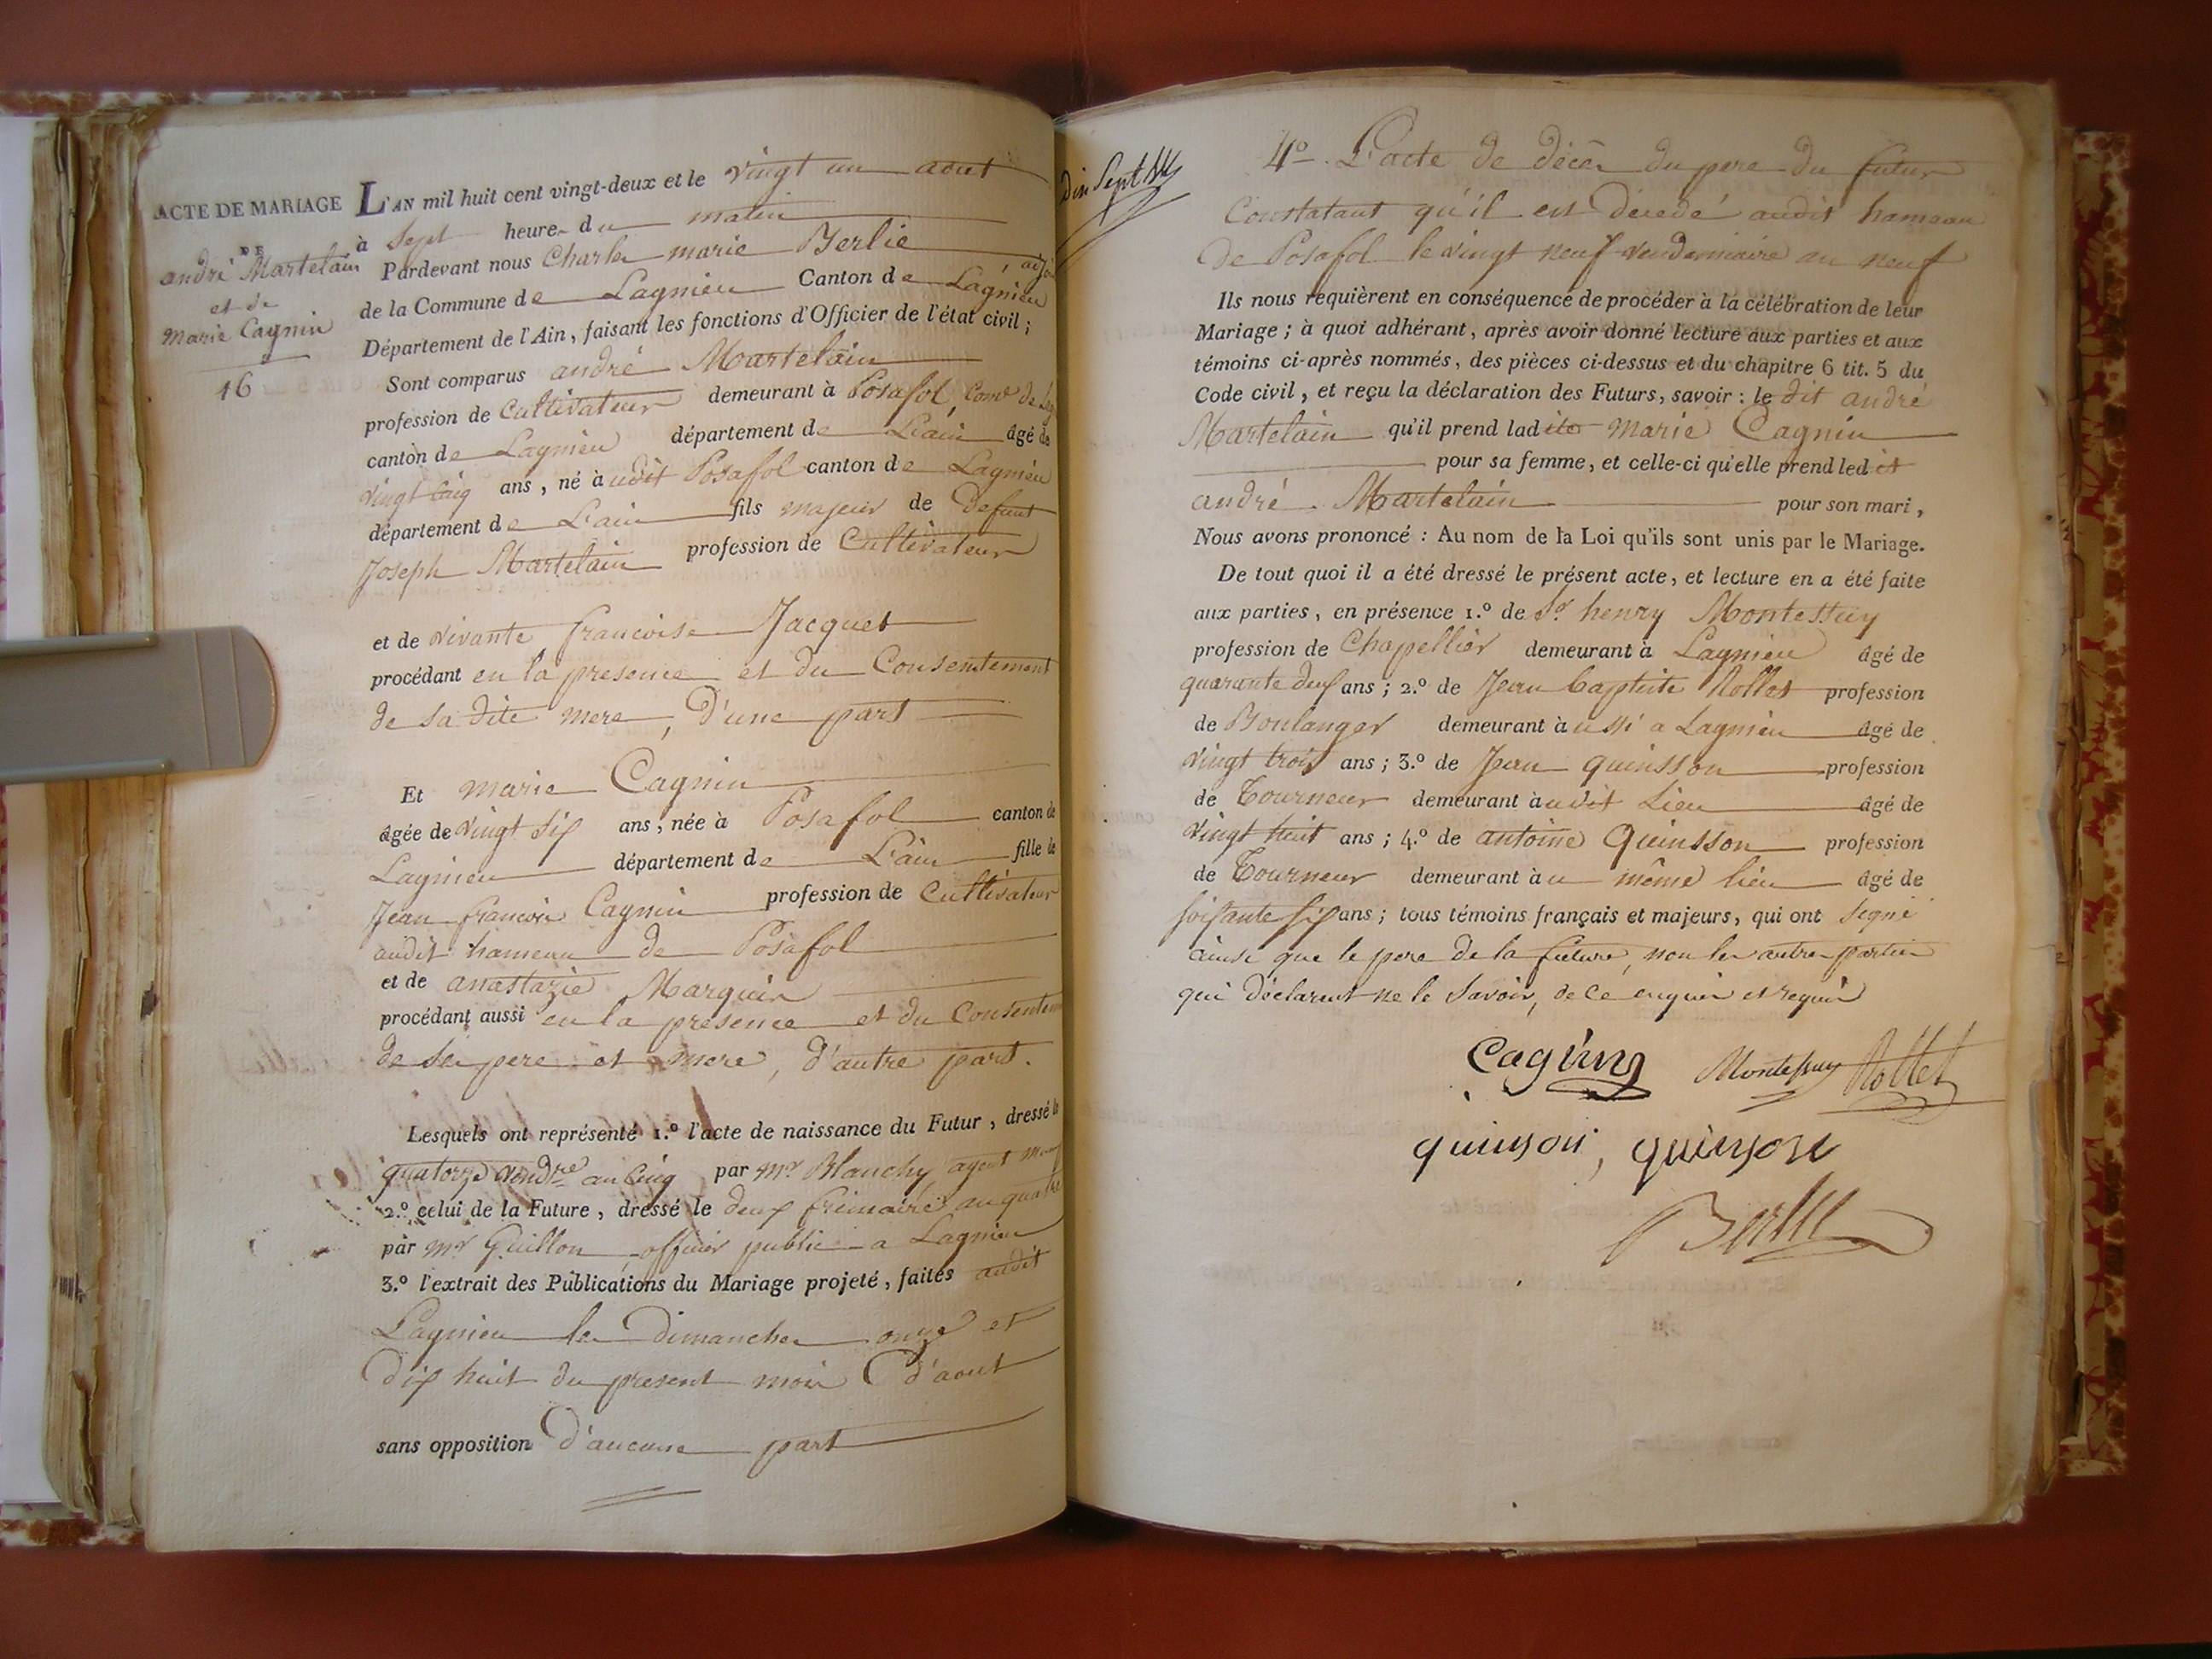 ACTE DE MARIAGE
DE
andré Martelain
et de
Marie Cagnin
16
L'AN mil huit cent vingt-deux et le vingt un aout
à Sept heure du matin
Pardevant nous Charles marie Berlie adjoint
de la Commune de Lagnieu Canton de Lagnieu
Département de l'Ain, faisant les fonctions d'Officier de l'état civil;
Sont comparus andré Martelain
profession de Cultivateur demeurant à Posafol, Com.e de Lag
canton de Lagnieu département de L'ain âgé de
vingt cinq ans, né audit Posafol canton de Lagnieu
département de L'ain fils majeur de defunt
Joseph Martelain profession de Cultivateur
et de vivante francoise Jacquet
procédant en la presence et du Consentement
de sa dite mere, d'une part
Et marie Cagnin
âgée de vingt six ans, née à Posafol canton de
Lagnieu département de L'ain fille de
Jean francois Cagnin profession de Cultivateur
audit hameau de Posafol
et de anastazie Marguin
procédant aussi en la presence et du Consentem
de ses pere et mere, d'autre part.
Lesquels ont représenté 1.º l'acte de naissance du Futur, dressé le
quatorze vend.re an Cinq par Mr Blanchy agent mun
2.º celui de la Future, dressé le deux frimaire an quatre
par Mr Guillon officier public a Lagnieu
3.º l'extrait des Publications du Mariage projeté, faites audit
Lagnieu les Dimanches onze et
dix huit du present mois d'aout
sans opposition d'aucune part
Dix Sept
4º. L'acte de décès du pere du futur
Constatant qu'il est décedé audit hameau
de Posafol le vingt neuf vendemiaire an neuf
Ils nous requièrent en conséquence de procéder à la célébration de leur
Mariage; à quoi adhérant, après avoir donné lecture aux parties et aux
témoins ci-après nommés, des pièces ci-dessus et du chapitre 6 tit. 5 du
Code civil, et reçu la déclaration des Futurs, savoir: le dit andré
Martelain qu'il prend ladite marie Cagnin
pour sa femme, et celle-ci qu'elle prend ledit
andré Martelain pour son mari,
Nous avons prononcé: Au nom de la Loi qu'ils sont unis par le Mariage.
De tout quoi il a été dressé le présent acte, et lecture en a été faite
aux parties, en présence 1.º de Sr henry Montessuy
profession de Chapellier demeurant à Lagnieu âgé de
quarante deux ans; 2.º de Jean baptiste Rollet profession
de Boulanger demeurant aussi a Lagnieu âgé de
vingt trois ans; 3.º de Jean quinsson profession
de Tourneur demeurant audit Lieu âgé de
vingt huit ans; 4.º de antoine Quinsson profession
de Tourneur demeurant au même lieu âgé de
soixante six ans; tous témoins français et majeurs, qui ont signé
ainsi que le pere de la future, non les autres parties
qui déclarent ne le savoir, de ce enquis et requis
Cagnin Montessuy Rollet
quinson, quinson
Berlie